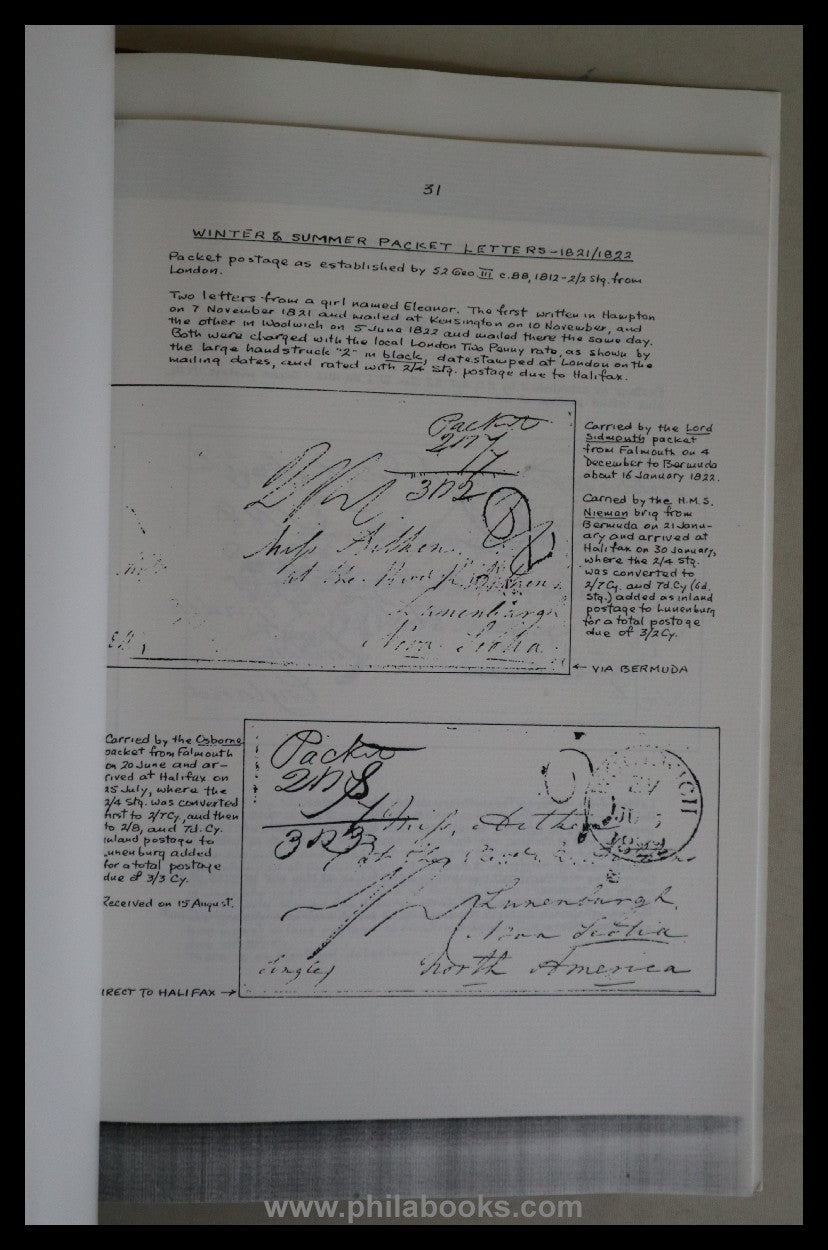 31
WINTER & SUMMER PACKET LETTERS-1821/1822
Packet postage as established by 52 Geo III c.88, 1812-2/2 Stg. from
London.
Two letters from a girl named Eleanor. The first written in Hampton
on 7 November 1821 and mailed at Kensington on 10 November, and
the other in Woolwich on 5 June 1822 and mailed there the same day.
Both were charged with the local London Two Penny rate, as shown by
the large handstruck "2" in black, datestamped at London on the
mailing dates, and rated with 2/4 Stg. postage due to Halifax.
Packet
2N7
7
3N2
Miss Aitken
at the Revd
Lunenburgh
Nova Scotia
Carried by the Lord
Sidmouth packet
from Falmouth on 4
December to Bermuda
about 16 January 1822.
Carried by the H.M.S.
Nieman brig from
Bermuda on 21 Janu-
ary and arrived at
Halifax on 30 January,
where the 2/4 Stg.
was converted to
2/7 Cy. and 7d. Cy (6d.
Stg.) added as inland
postage to Lunenburg
for a total postage
due of 3/2 Cy.
← VIA BERMUDA
Carried by the Osborne
packet from Falmouth
on 20 June and ar-
rived at Halifax on
25 July, where the
2/4 Stg. was converted
first to 2/7 Cy, and then
to 2/8, and 7d. Cy.
inland postage to
unenburg added
for a total postage
due of 3/3 Cy.
Received on 15 August.
IRECT TO HALIFAX →
Packet
2N8
7
3N3
Miss, Aitken
at the Revd
Lunenburgh
Nova Scotia
North America
Single
www.philabooks.com